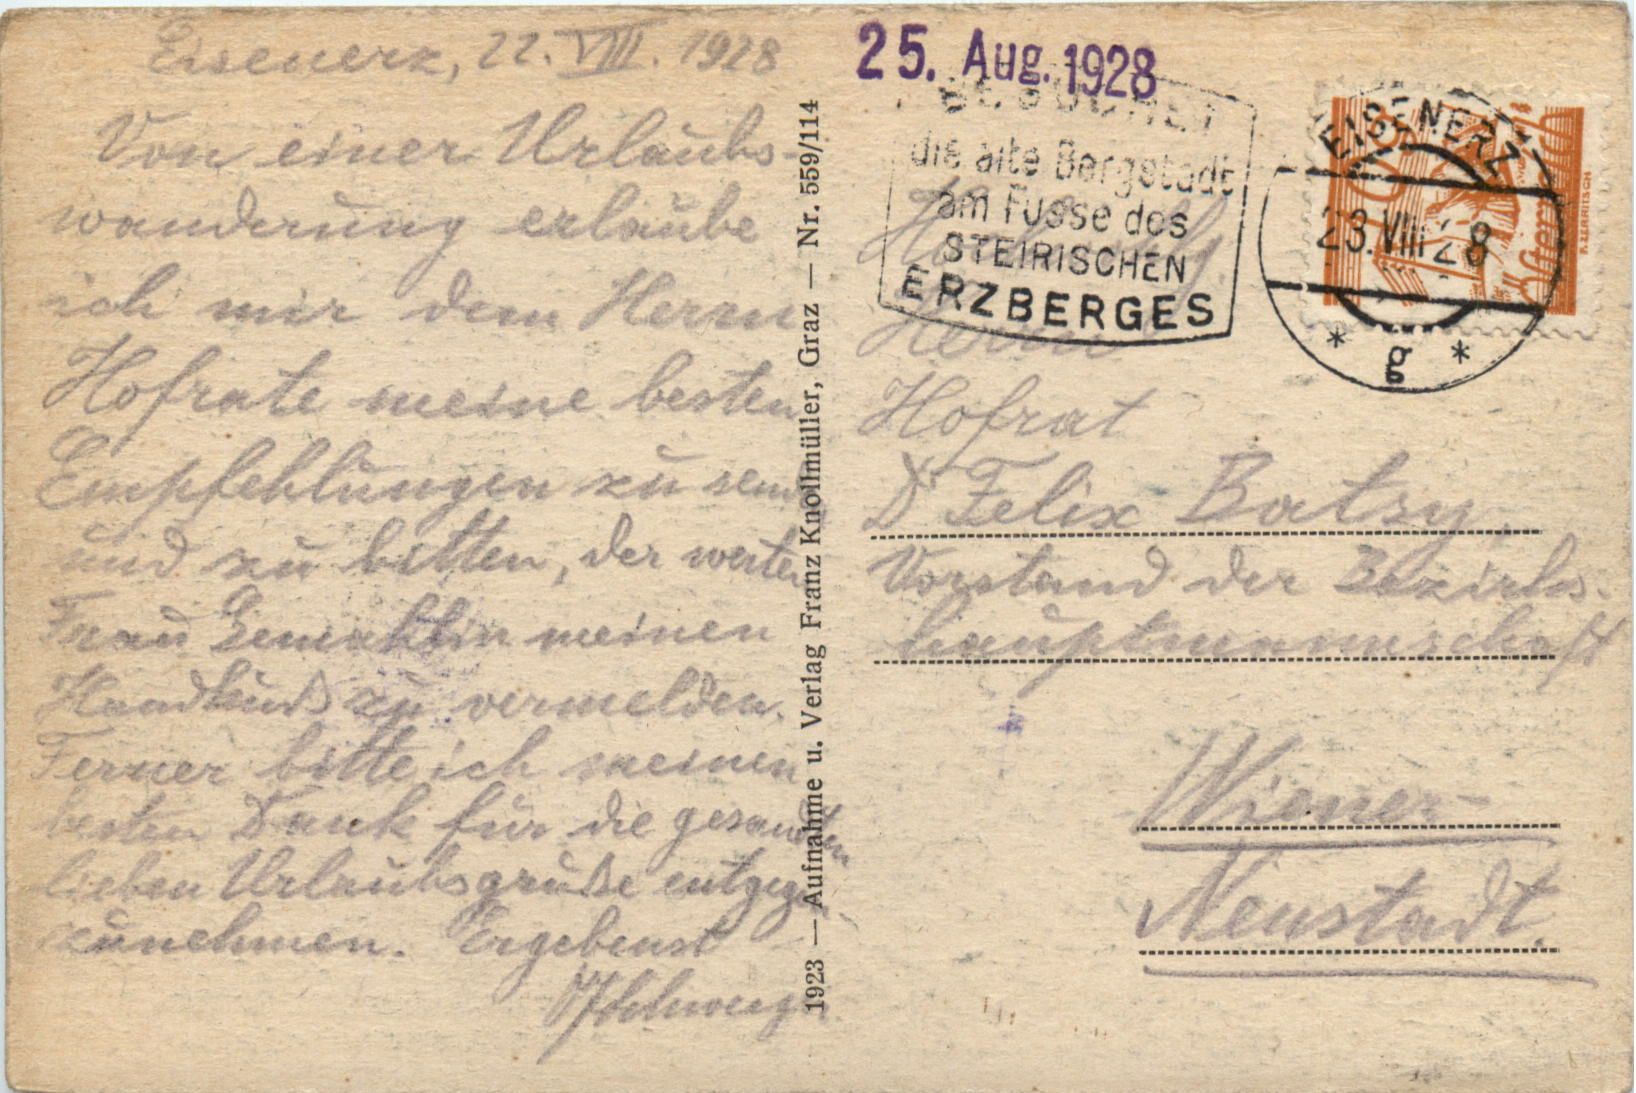 Eisenerz, 22. VIII. 1928
Von einer Urlaubs-
wanderung erlaube
ich mir dem Herrn
Hofrate meine besten
Empfehlungen zu senden
und zu bitten, der werten
Frau Gemahlin meinen
Handkuß zu vermelden.
Ferner bitte ich meinen
besten Dank für die gesandten
lieben Urlaubsgrüße entgegen
zunehmen. Ergebenst
1923 — Aufnahme u. Verlag Franz Knollmüller, Graz — Nr. 559/114
25. Aug. 1928
BESUCHET
die alte Bergstadt
am Fusse des
STEIRISCHEN
ERZBERGES
EISENERZ
23.VIII 28
* g *
Herrn
Hofrat
Dr Felix Batsy,
Vorstand der Bezirks-
hauptmannschaft
Wiener-
Neustadt.